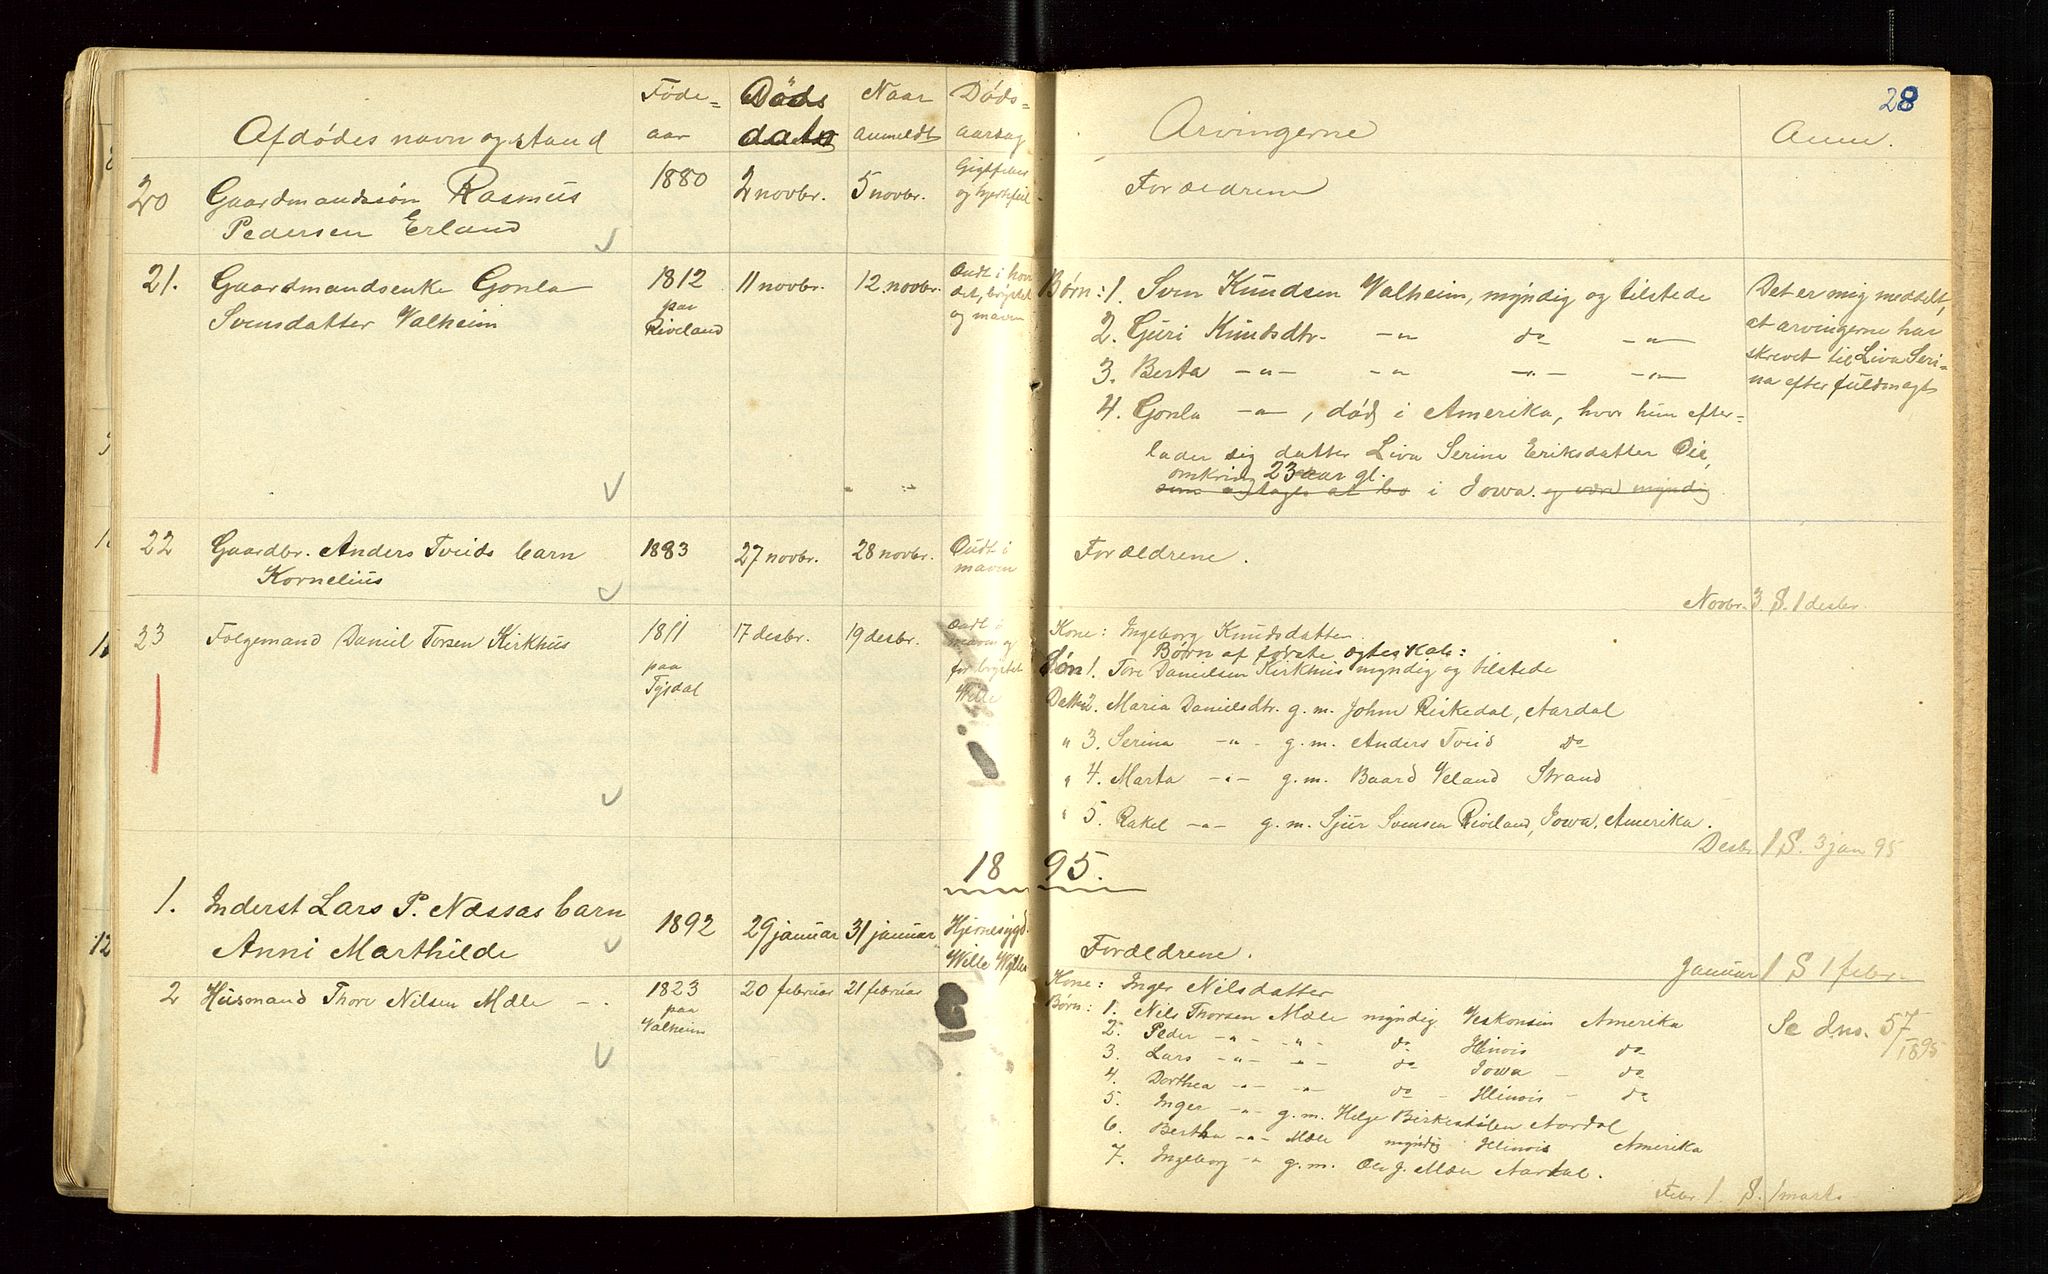 28
Afdødes navn og stand | Føde=aar | Døds dato | Naar anmeldt | Døds=aarsag | Arvingerne | Anm.
20 Gaardmandssøn Rasmus | 1880 | 2 novbr. | 5 novbr. | Gigtfeber og hjertefeil | Forældrene
Pedersen Erland
21. Gaardmandsenke Gonla | 1812 | 11 novbr. | 12 novbr. | Ondt i hove
Svensdatter Valheim | paa Riveland | det, brystet og maven
Børn: 1. Sven Knudsen Valheim, myndig og tilstede
2. Guri Knutsdtr. -"- do -"-
3. Berta -"- -"- -"- -"-
4. Gonla -"-, død i Amerika, hvor hun efter=
lader sig datter Liva Serine Eriksdatter Øie,
omkring 23 aar gl.
som antages at bo i Iowa. og være myndig
Det er mig meddelt,
at arvingerne har
skrevet til Liva Seri=
na efter fuldmagt
22 Gaardbr. Anders Tveids barn | 1883 | 27 novbr. | 28 novbr. | Ondt i maven | Forældrene.
Kornelius
Novbr. 3. S. 1 desbr.
23 Folgemand Daniel Torsen Kirkhus | 1811 | 17 desbr. | 19 desbr. | Ondt i
paa Tysdal | maven og for brystet Wille
Kone: Ingeborg Knudsdatter
Børn af første egteskab:
Søn 1. Tore Danielsen Kirkhus myndig og tilstede
Datter 2. Maria Danielsdtr. g. m. John Riskedal, Aardal
" 3. Serina -"- g. m. Anders Tveid do
" 4. Marta -"- g. m. Baard Veland Strand
" 5. Rakel -"- g. m. Sjur Svensen Riveland, Iowa, Amerika.
Desbr 1 S. 3 jan 95
1895.
1. Inderst Lars P. Næssas barn | 1892 | 29 januar | 31 januar | Hjernesygd.
Anni Marthilde | Wille | Forældrene.
Januar 1 S 1 febr.
2 Husmand Thore Nilsen Mæle | 1823 | 20 februar | 21 februar
paa Valheim
Kone: Inger Nilsdatter
Børn: 1. Nils Thorsen Mæle myndig Veskonsin Amerika
2. Peder -"- -"- do Ilinois do
3. Lars -"- -"- do Iowa - do
4. Dorthea -"- -"- do - Ilinois - do
5. Inger -"- g. m. Helge Birkestølen Aardal
6. Bertha -"- Mæle myndig Ilinois Amerika
7. Ingeborg -"- g. m. Ole J. Mæle Aardal.
Se Jno. 57/1895
Febr 1. S. 1 marts